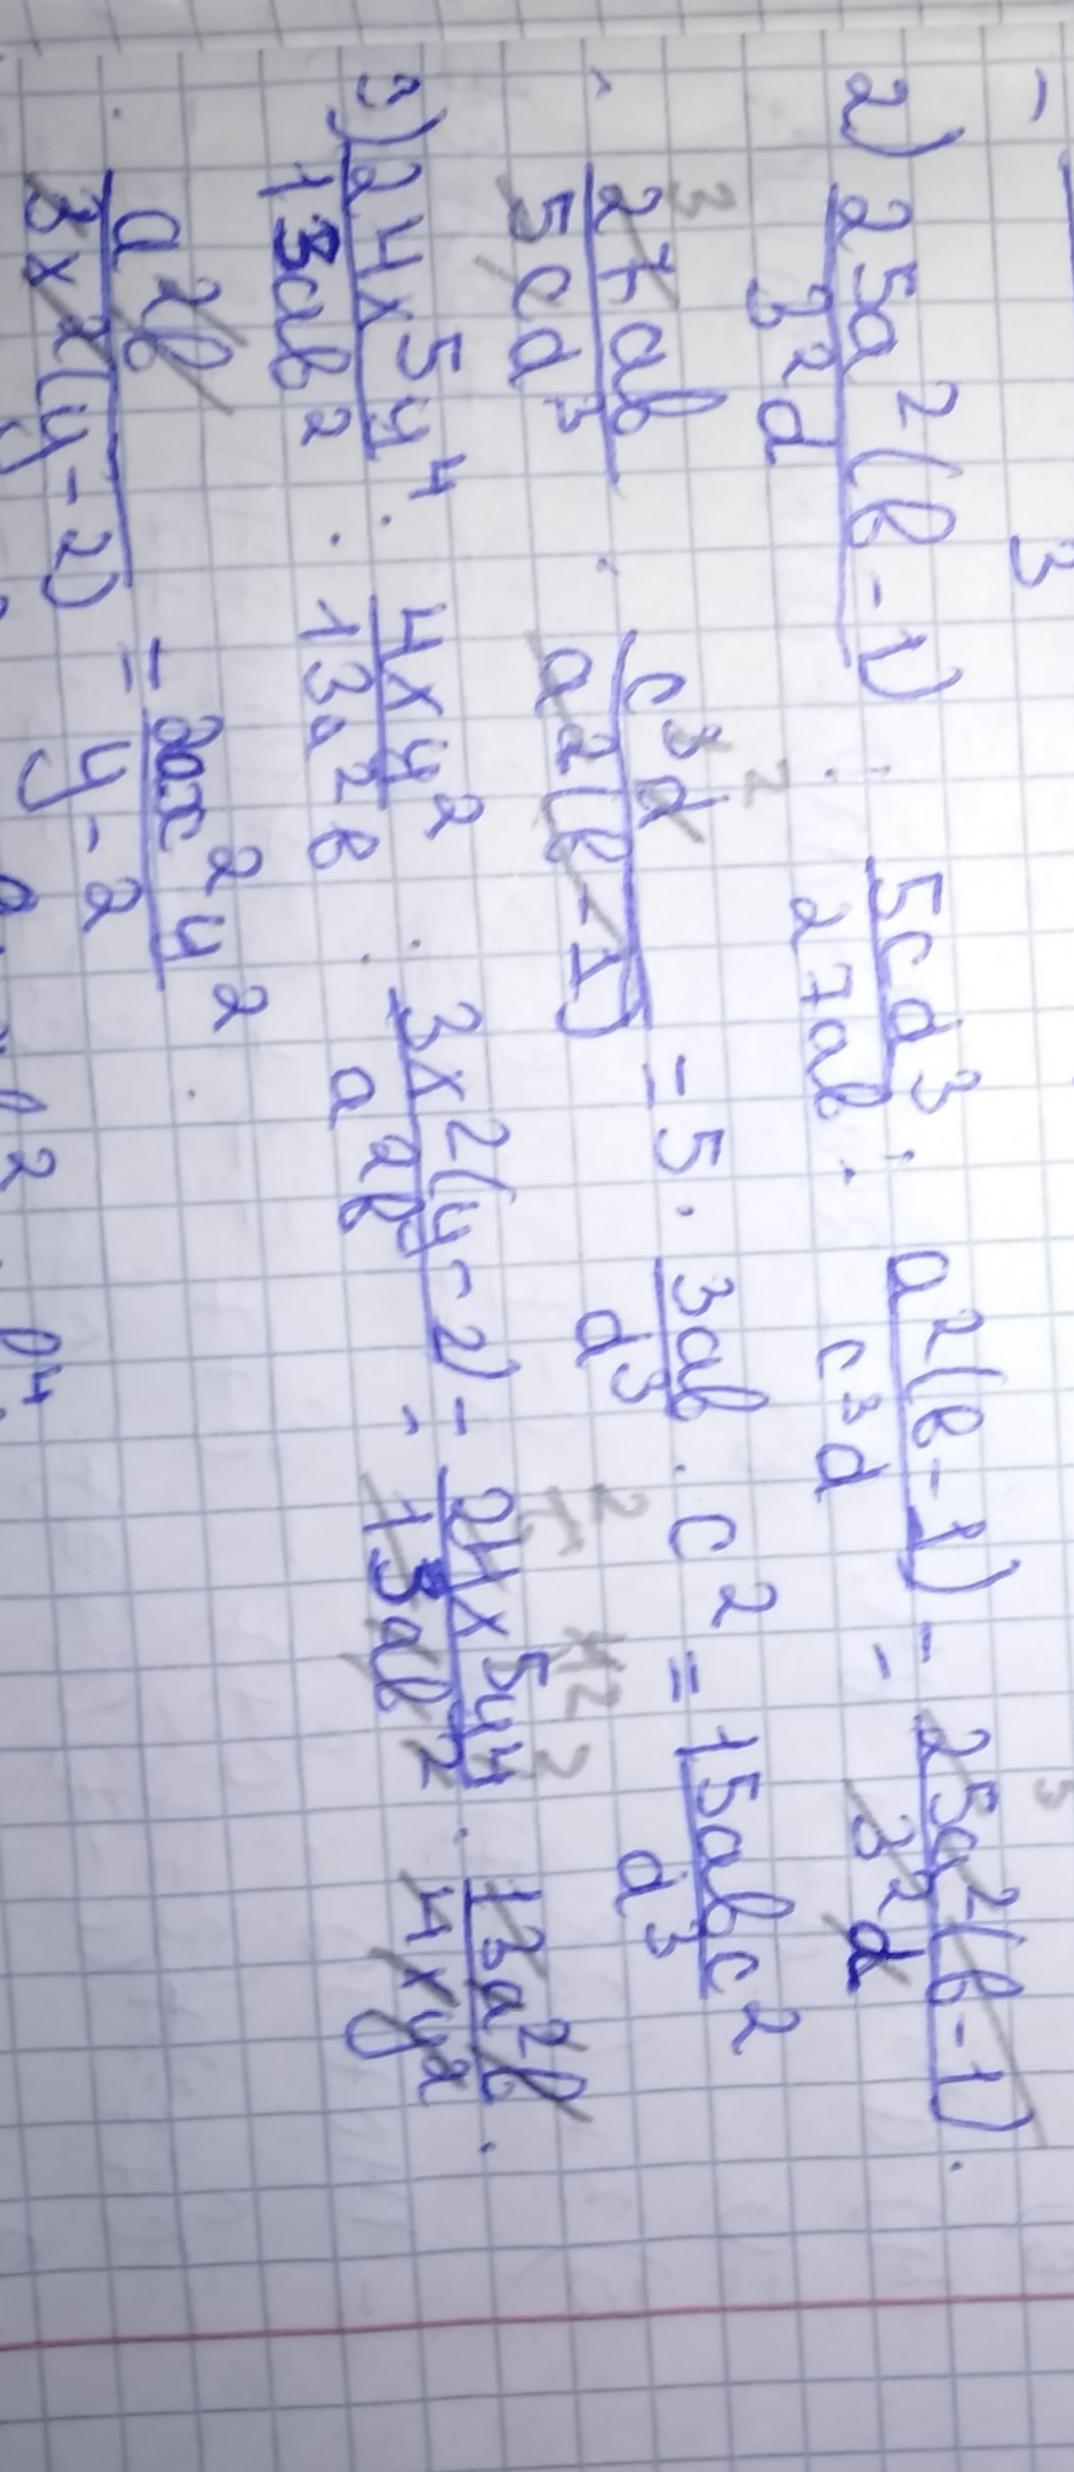 3
2) 25a²(b-1) / 3²d : 5cd³ / 27ab : a²(b-1) / c³d = 25a²(b-1) / 3²d ·
· 27ab / 5cd³ · c³d / a²(b-1) = 5 · 3ab / d³ · c² = 15abc² / d³
3) 24x⁵y⁴ / 13ab² : 4xy² / 13a²b : 3x²(y-2) / a²b = 24x⁵y⁴ / 13ab² · 13a²b / 4xy² ·
· a²b / 3x²(y-2) = 2ax²y² / y-2